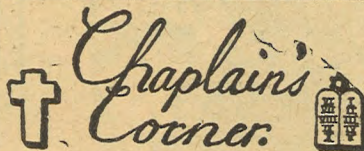 Chaplain's
Corner.